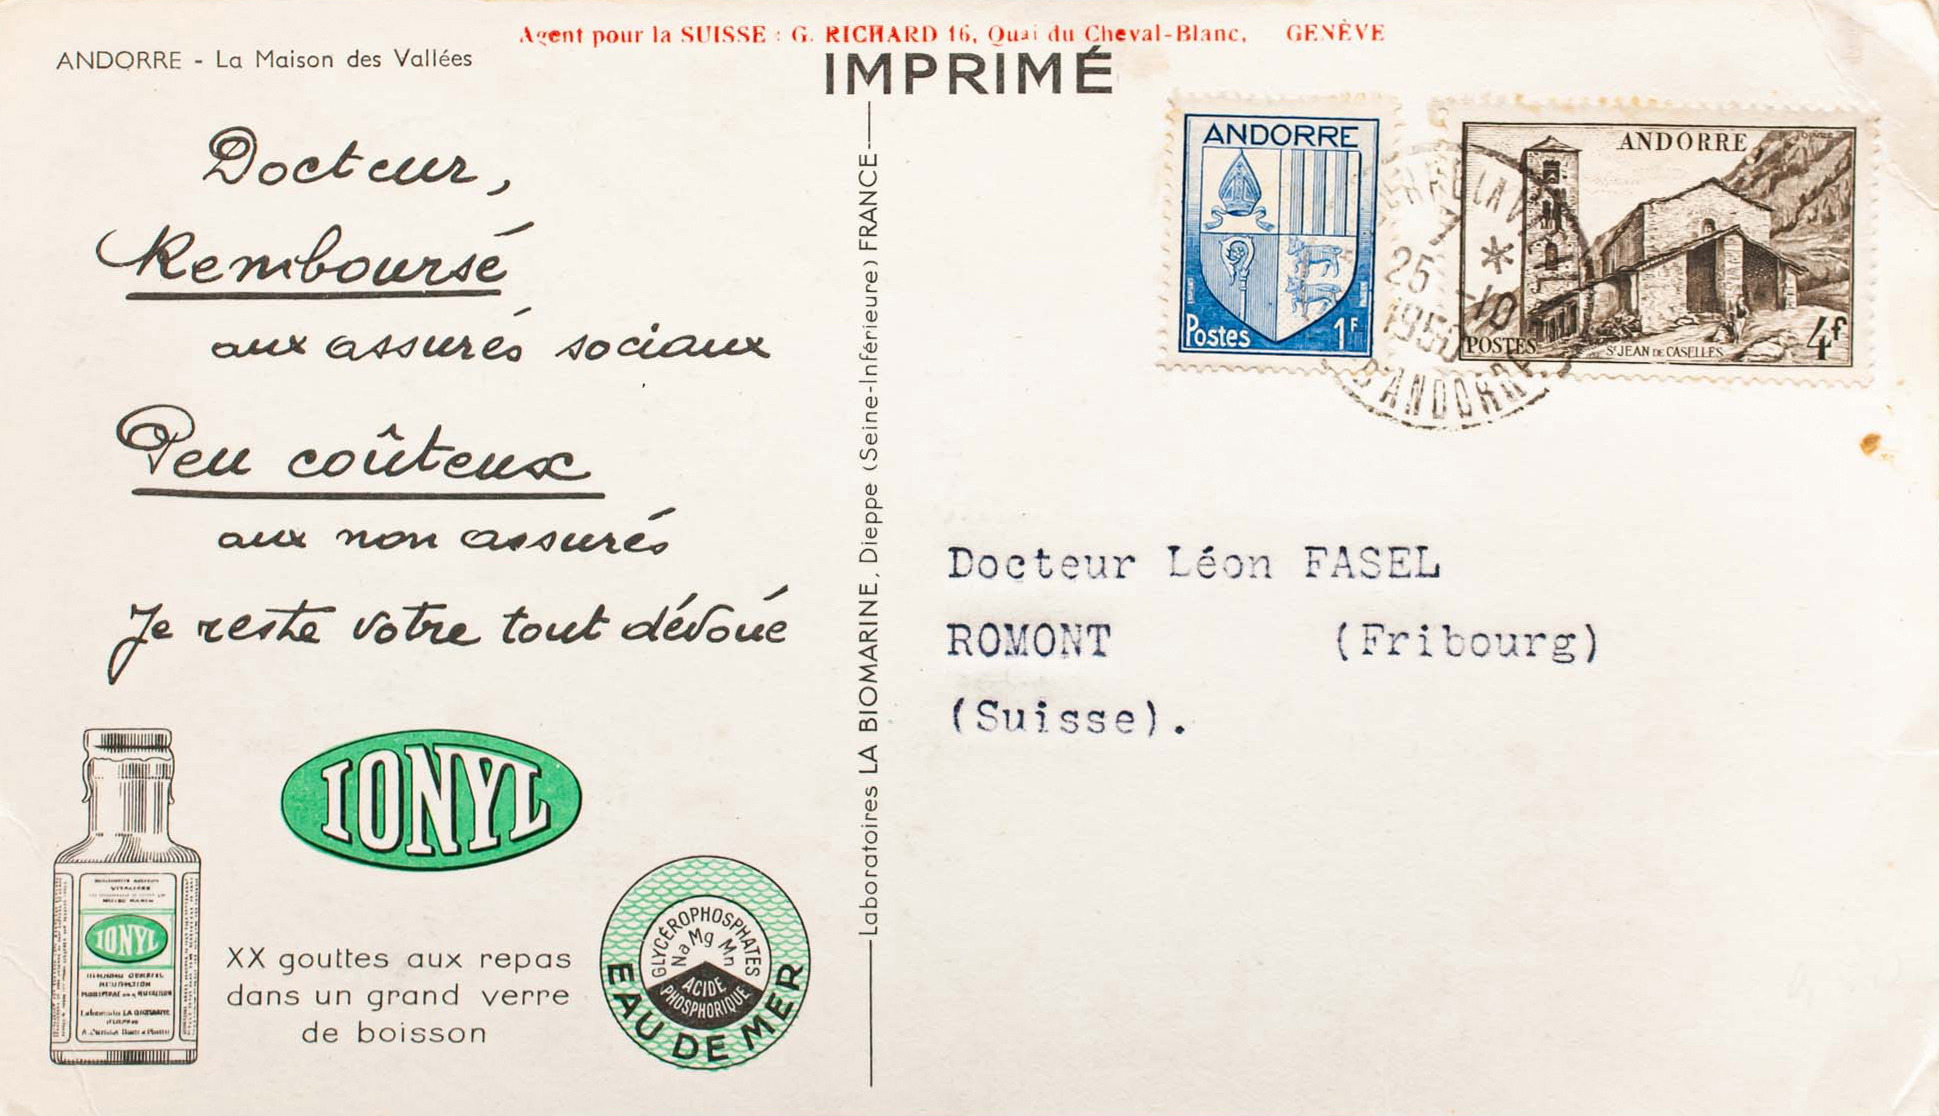 Agent pour la SUISSE : G. RICHARD 16, Quai du Cheval-Blanc, GENÈVE
ANDORRE - La Maison des Vallées
IMPRIMÉ
Docteur,
Remboursé
aux assurés sociaux
Peu coûteux
aux non assurés
Je reste votre tout dévoué
IONYL
XX gouttes aux repas
dans un grand verre
de boisson
IONYL
GLYCÉROPHOSPHATES
Na Mg Mn
ACIDE
PHOSPHORIQUE
EAU DE MER
Laboratoires LA BIOMARINE, Dieppe (Seine-Inférieure) FRANCE
ANDORRE
Postes 1F
ANDORRE
POSTES ST JEAN DE CASELLES 4f
7 *
25 -10
1950
D'ANDORRE
Docteur Léon FASEL
ROMONT (Fribourg)
(Suisse).